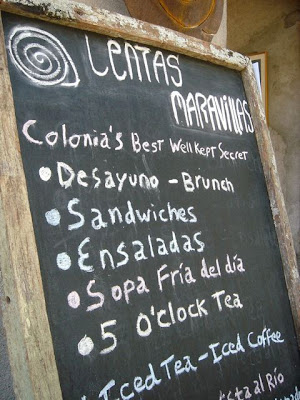 Lentas
Maravillas
Colonia's Best Well Kept Secret
• Desayuno - Brunch
• Sandwiches
• Ensaladas
• Sopa Fría del día
• 5 O'clock Tea
• Iced Tea - Iced Coffee
al Río